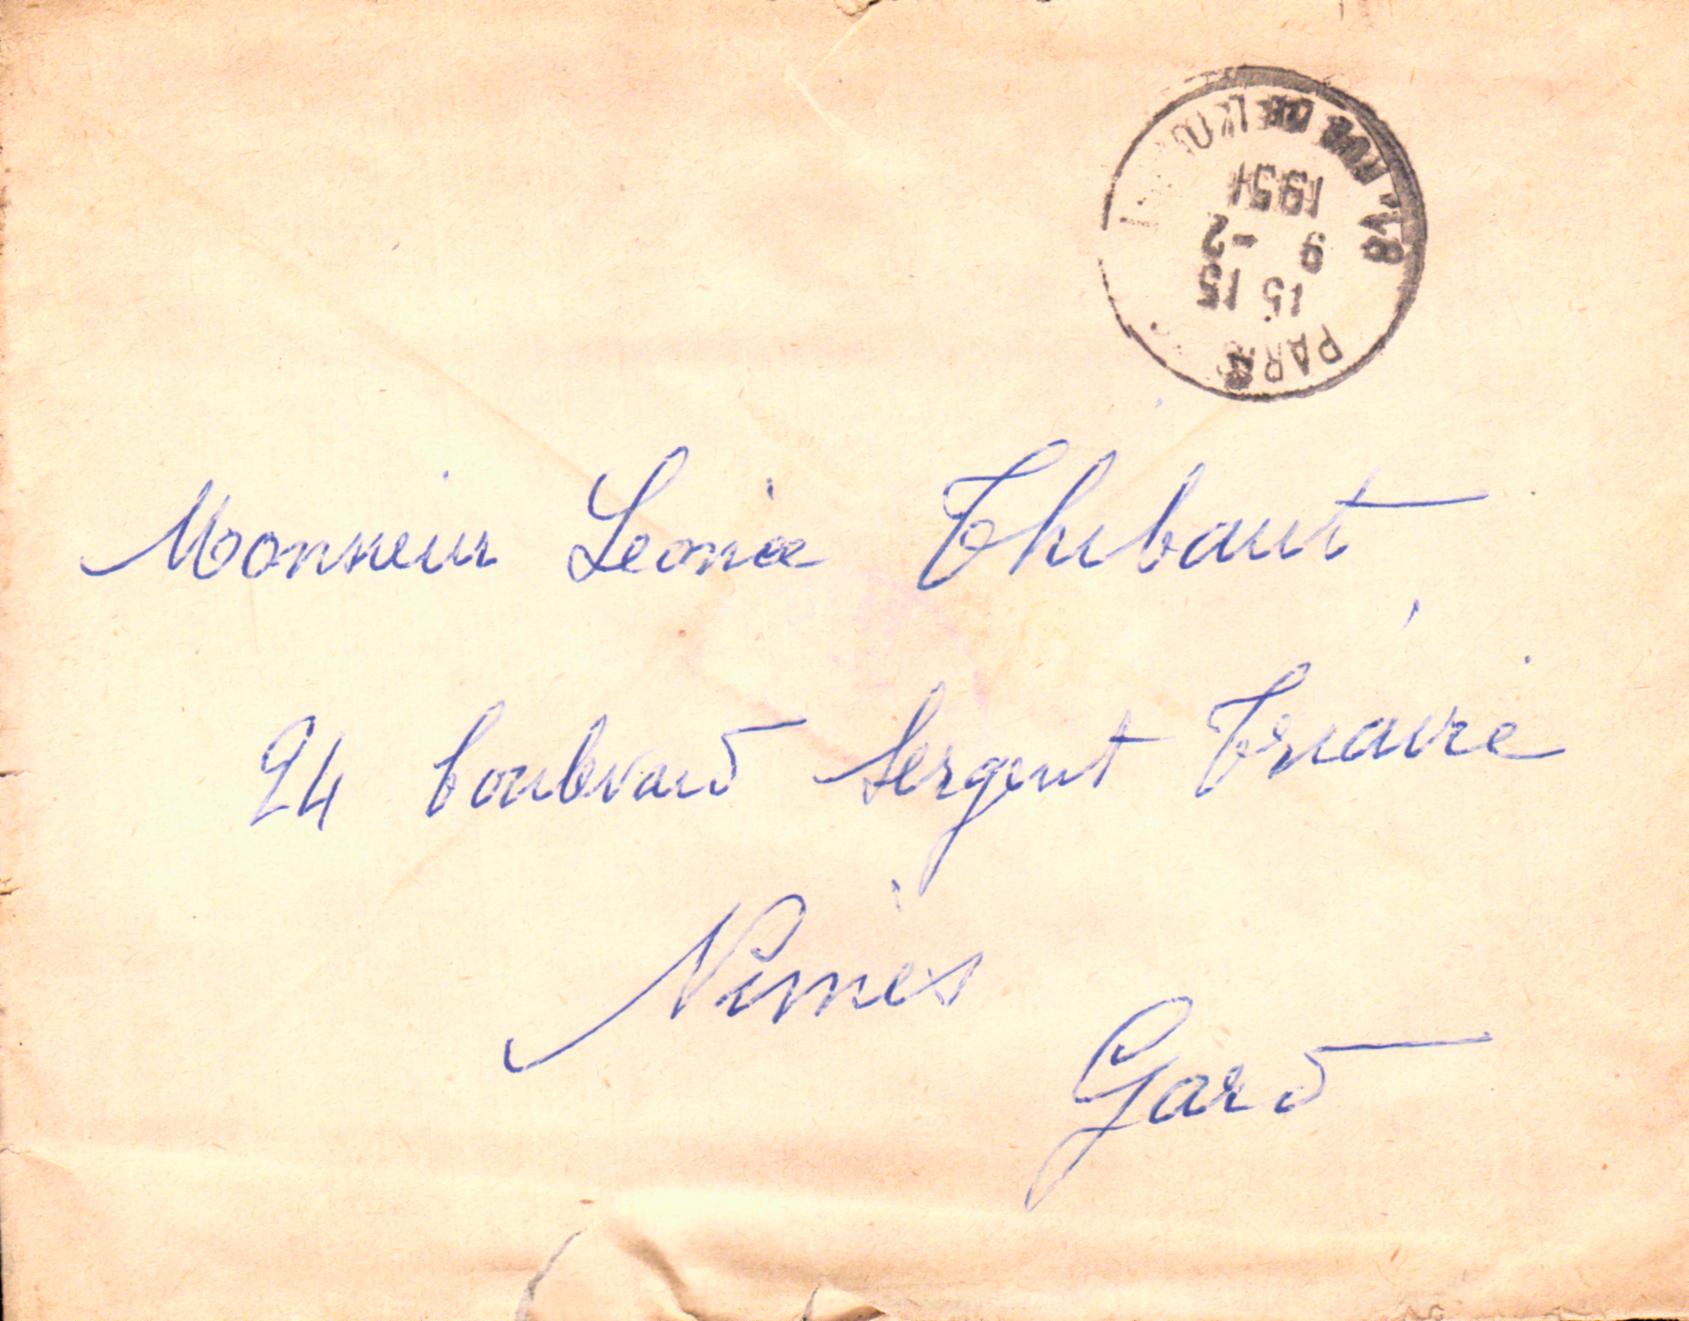 PARIS
15 15
9 -2
1951
Monsieur Leonce Thibaut
24 boulevard Sergent Triaire
Nîmes
Gard